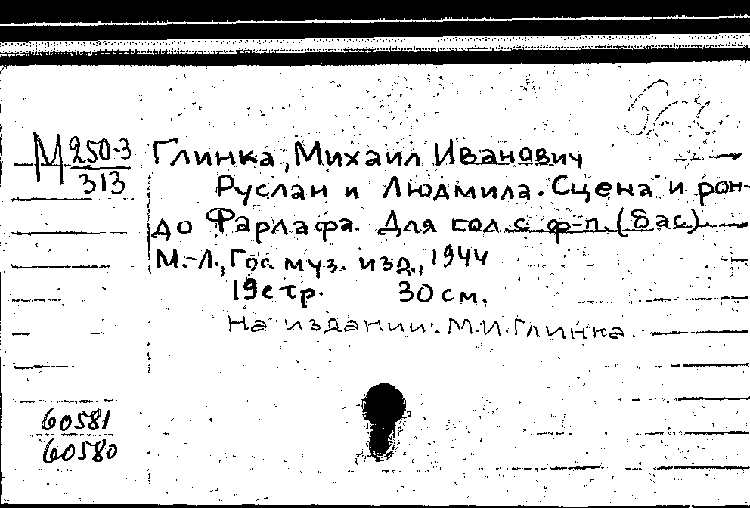 М 250-3
313
Глинка, Михаил Иванович
Руслан и Людмила. Сцена и рон-
до Фарлафа. Для гол. с ф-п. (бас)
М.-Л., Гос. муз. изд., 1944
19 стр. 30 см.
На издании: М.И. Глинка.
60581
60580